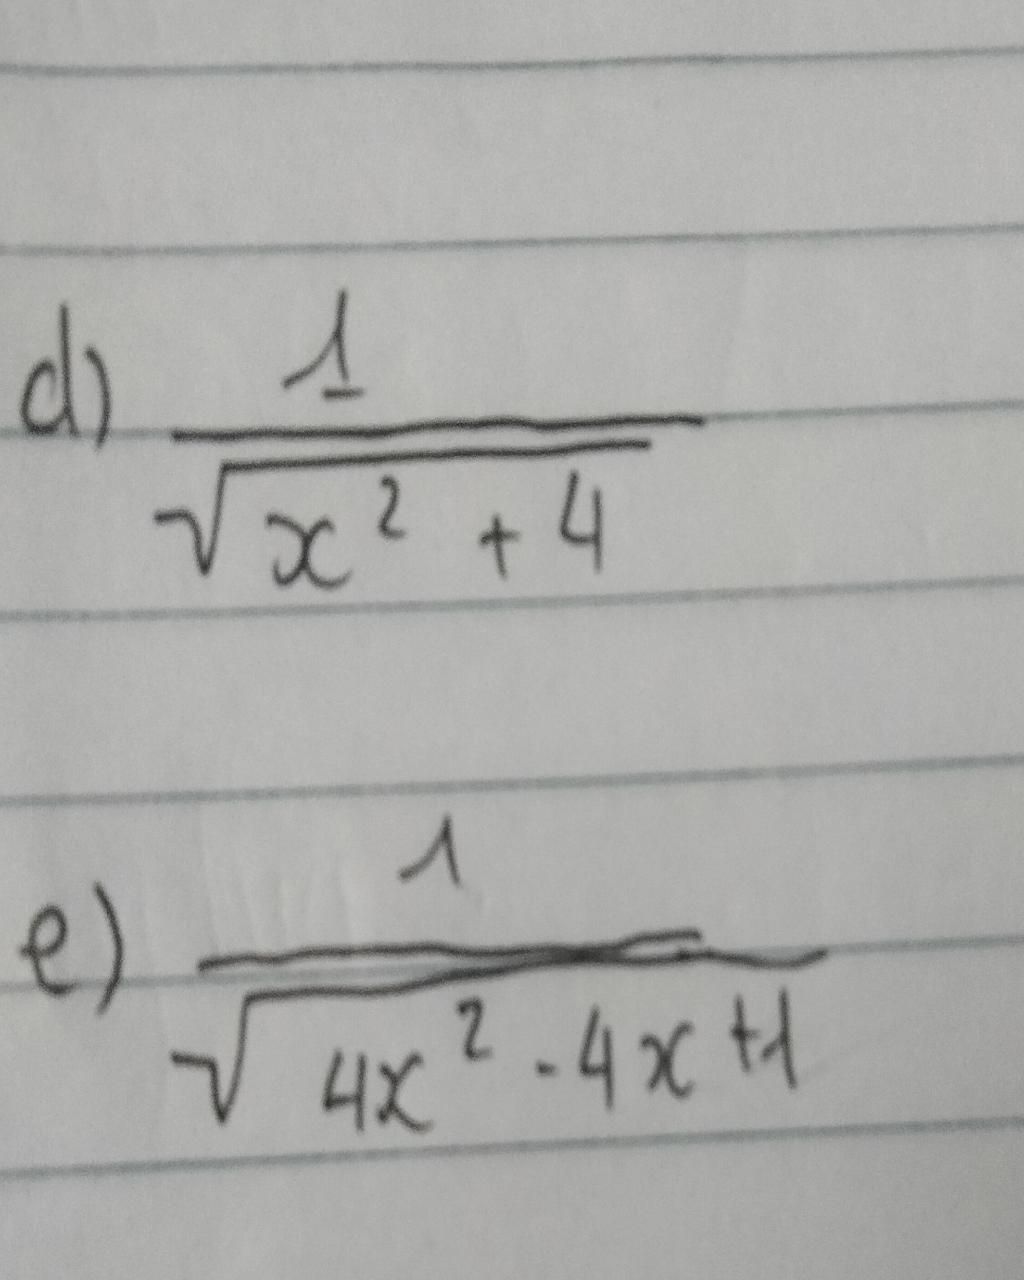 d) 1/√(x² + 4)
e) 1/√(4x² - 4x + 1)